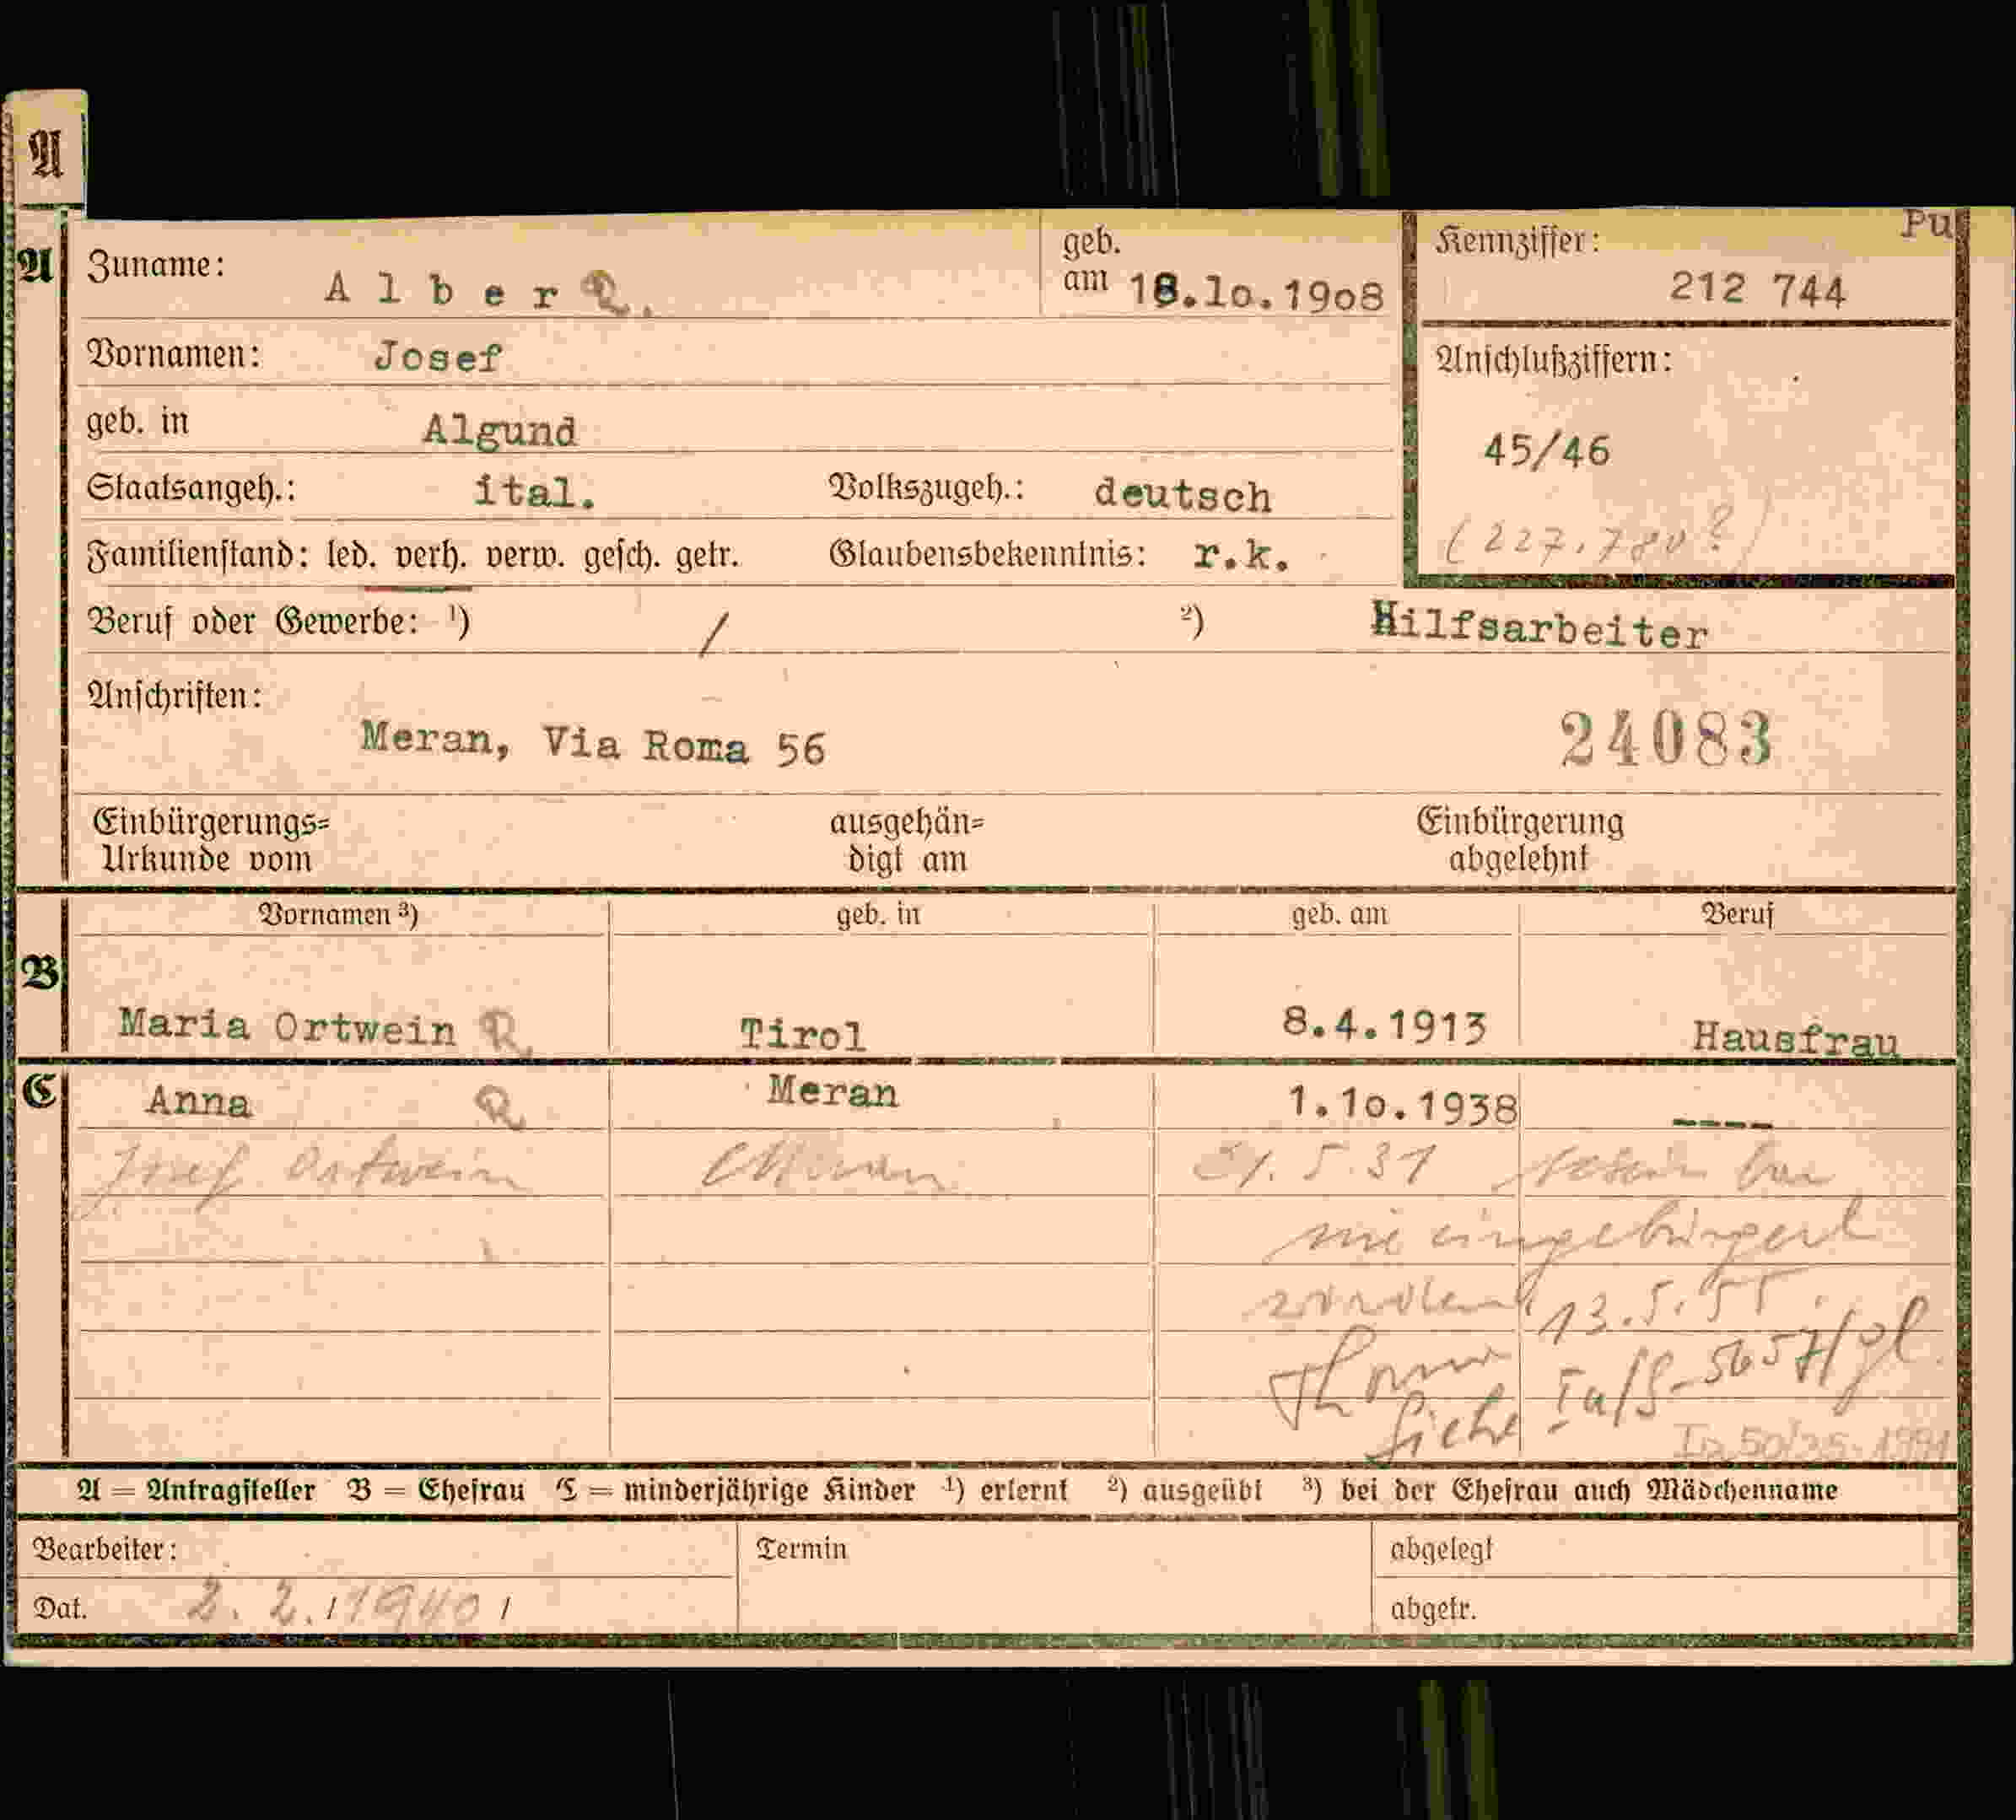 A
Pu
A Zuname: Alber R. geb. am 18.10.1908 Kennziffer: 212 744
Vornamen: Josef Anschlußziffern:
geb. in Algund 45/46
Staatsangeh.: ital. Volkszugeh.: deutsch
Familienstand: led. verh. verw. gesch. getr. Glaubensbekenntnis: r.k. (227.780?)
Beruf oder Gewerbe: ¹) / ²) Hilfsarbeiter
Anschriften:
Meran, Via Roma 56 24083
Einbürgerungs= ausgehän= Einbürgerung
Urkunde vom digt am abgelehnt
Vornamen ³) geb. in geb. am Beruf
B
Maria Ortwein R. Tirol 8.4.1913 Hausfrau
C Anna R Meran 1.10.1938 ----
Josef Ortwein Meran 21.5.31
nie eingebürgert
worden 13.5.55.
Siehe
A = Antragsteller B = Ehefrau C = minderjährige Kinder ¹) erlernt ²) ausgeübt ³) bei der Ehefrau auch Mädchenname
Bearbeiter: Termin abgelegt
Dat. 2. 2./1940/ abgetr.